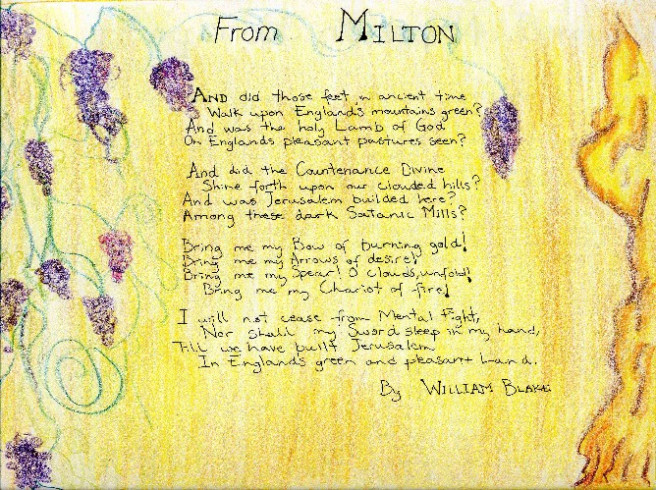 From MILTON
AND did those feet in ancient time
Walk upon England's mountains green?
And was the holy Lamb of God
On Englands pleasant pastures seen?
And did the Countenance Divine
Shine forth upon our clouded hills?
And was Jerusalem builded here?
Among these dark Satanic Mills?
Bring me my Bow of burning gold!
Bring me my Arrows of desire!
Bring me my Spear! O clouds, unfold!
Bring me my Chariot of fire!
I will not cease from Mental Fight,
Nor shall my Sword sleep in my hand,
Till we have built Jerusalem
In England's green and pleasant Land.
By WILLIAM BLAKE